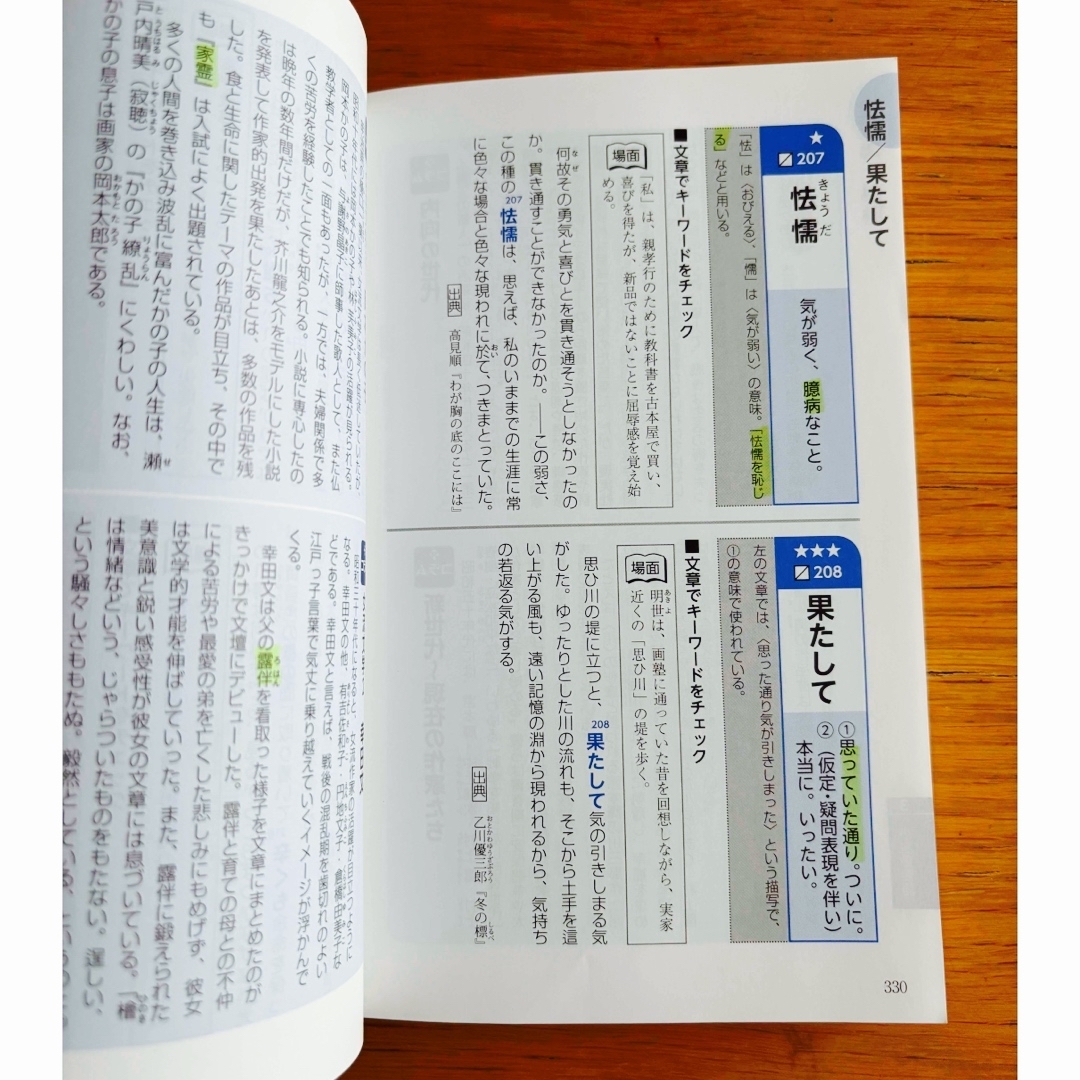 怯懦／果たして
★
207
きょうだ
怯懦
気が弱く、臆病なこと。
「怯」は〈おびえる〉、「懦」は〈気が弱い〉の意味。「怯懦を恥じ
る」などと用いる。
■文章でキーワードをチェック
場面
「私」は、親孝行のために教科書を古本屋で買い、
喜びを得たが、新品ではないことに屈辱感を覚え始
める。
何故その勇気と喜びとを貫き通そうとしなかったの
なぜ
か。貫き通すことができなかったのか。――この弱さ、
この種の207怯懦は、思えば、私のいままでの生涯に常
に色々な場合と色々な現われに於て、つきまとっていた。
おい
出典 高見順『わが胸の底のここには』
★★★
208
果たして
①思っていた通り。ついに。
②（仮定・疑問表現を伴い）
本当に。いったい。
左の文章では、〈思った通り気が引きしまった〉という描写で、
①の意味で使われている。
■文章でキーワードをチェック
場面
明世は、画塾に通っていた昔を回想しながら、実家
あきよ
近くの「思ひ川」の堤を歩く。
思ひ川の堤に立つと、208果たして気の引きしまる気
がした。ゆったりとした川の流れも、そこから土手を這
い上がる風も、遠い記憶の淵から現われるから、気持ち
の若返る気がする。
出典 乙川優三郎『冬の標』
おとかわゆうざぶろう
しるべ
330
教学者としての一面もあったが、一方では、夫婦関係で多
くの苦労を経験したことでも知られる。小説に専心したの
は晩年の数年間だけだが、芥川龍之介をモデルにした小説
を発表して作家的出発を果たしたあとは、多数の作品を残
した。食と生命に関したテーマの作品が目立ち、その中で
も『家霊』は入試によく出題されている。
多くの人間を巻き込み波乱に富んだかの子の人生は、瀬
せ
戸内晴美（寂聴）の『かの子繚乱』にくわしい。なお、
とうちはるみ
じゃくちょう
りょうらん
かの子の息子は画家の岡本太郎である。
おかもとたろう
昭和三十年代になると、女流作家の活躍が目立つように
なる。幸田文の他、有吉佐和子・円地文子・倉橋由美子な
どである。幸田文と言えば、戦後の混乱期を歯切れのよい
江戸っ子言葉で気丈に乗り越えていくイメージが浮かんで
くる。
幸田文は父の露伴を看取った様子を文章にまとめたのが
ろはん
きっかけで文壇にデビューした。露伴と育ての母との不仲
による苦労や最愛の弟を亡くした悲しみにもめげず、彼女
は文学的才能を伸ばしていった。また、露伴に鍛えられた
美意識と鋭い感受性が彼女の文章には息づいている。「檜
ひのき
は情緒などという、じゃらついたものをもたない。逞しい、
という騒々しさももたぬ。毅然としている、